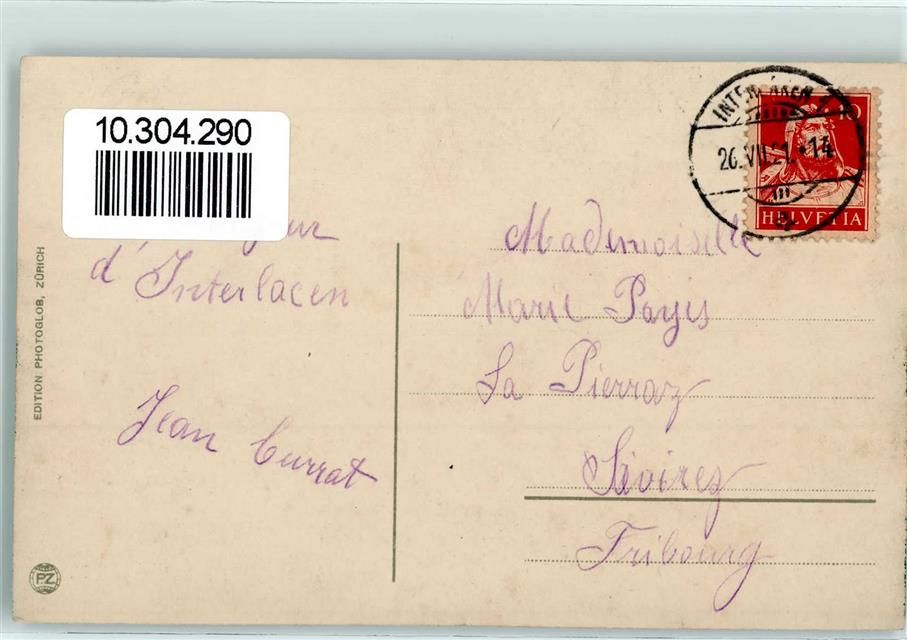 10.304.290
INTERLAKEN
26.VII.21.-14
10
HELVETIA
d'Interlacen
Jean Currat
Mademoiselle
Marie Payis
La Pierraz
Sivirez
Fribourg
EDITION PHOTOGLOB, ZÜRICH
PZ